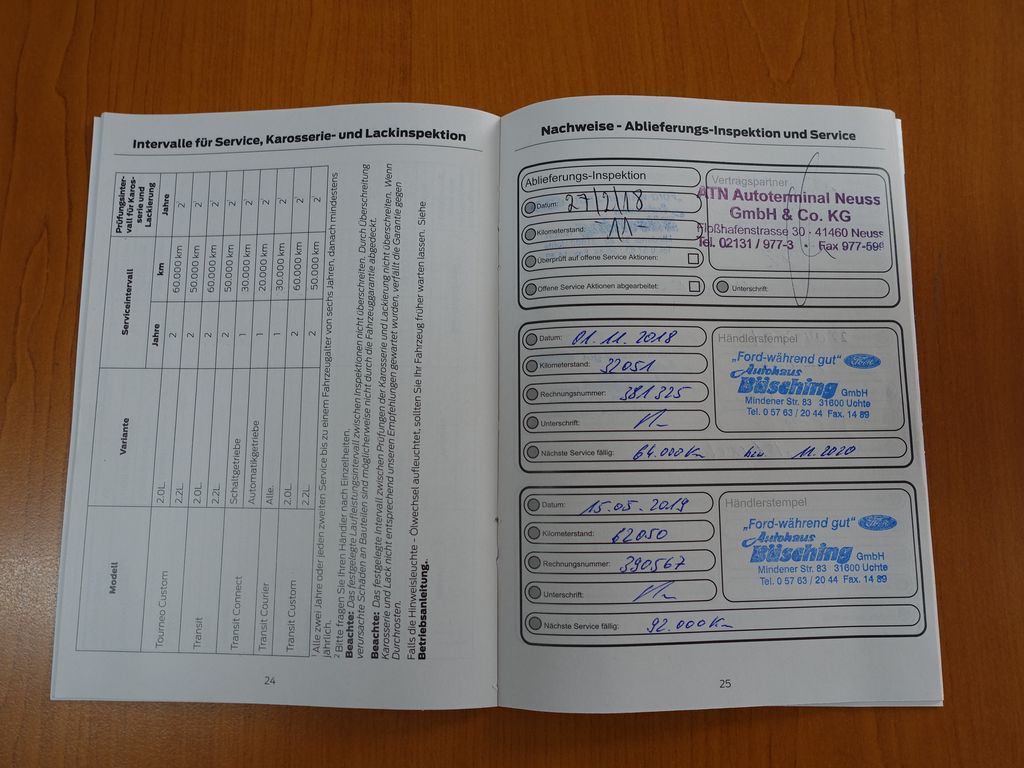 Intervalle für Service, Karosserie- und Lackinspektion
Modell
Variante
Serviceintervall
Prüfungsinter-
vall für Karos-
serie und
Lackierung
Jahre
km
Jahre
Tourneo Custom
2.0L
2
60.000 km
2
2.2L
2
50.000 km
2
Transit
2.0L
2
60.000 km
2
2.2L
2
50.000 km
2
Transit Connect
Schaltgetriebe
1
30.000 km
2
Automatikgetriebe
1
20.000 km
2
Transit Courier
Alle.
1
30.000 km
2
Transit Custom
2.0L
2
60.000 km
2
2.2L
2
50.000 km
2
¹ Alle zwei Jahre oder jeden zweiten Service bis zu einem Fahrzeugalter von sechs Jahren, danach mindestens
jährlich.
² Bitte fragen Sie Ihren Händler nach Einzelheiten.
Beachte: Das festgelegte Laufleistungsintervall zwischen Inspektionen nicht überschreiten. Durch Überschreitung
versursachte Schäden an Bauteilen sind möglicherweise nicht durch die Fahrzeuggarantie abgedeckt.
Beachte: Das festgelegte Intervall zwischen Prüfungen der Karosserie und Lackierung nicht überschreiten. Wenn
Karosserie und Lack nicht entsprechend unseren Empfehlungen gewartet wurden, verfällt die Garantie gegen
Durchrosten.
Falls die Hinweisleuchte - Ölwechsel aufleuchtet, sollten Sie Ihr Fahrzeug früher warten lassen. Siehe
Betriebsanleitung.
24
Nachweise - Ablieferungs-Inspektion und Service
Ablieferungs-Inspektion
Datum: 27/2/18
Kilometerstand: 11-
Überprüft auf offene Service Aktionen:
Offene Service Aktionen abgearbeitet:
Vertragspartner
ATN Autoterminal Neuss
GmbH & Co. KG
Floßhafenstrasse 30 · 41460 Neuss
Tel. 02131 / 977-3 · Fax 977-599
Unterschrift:
Datum: 01.11.2018
Kilometerstand: 32051
Rechnungsnummer: 381325
Unterschrift:
Nächste Service fällig: 64.000Km bzw 11.2020
Händlerstempel
„Ford-während gut“ Ford
Autohaus
Büsching GmbH
Mindener Str. 83 31600 Uchte
Tel. 0 57 63 / 20 44 Fax. 14 89
Datum: 15.05.2019
Kilometerstand: 62050
Rechnungsnummer: 390567
Unterschrift:
Nächste Service fällig: 92.000Km
Händlerstempel
„Ford-während gut“ Ford
Autohaus
Büsching GmbH
Mindener Str. 83 31600 Uchte
Tel. 0 57 63 / 20 44 Fax. 14 89
25